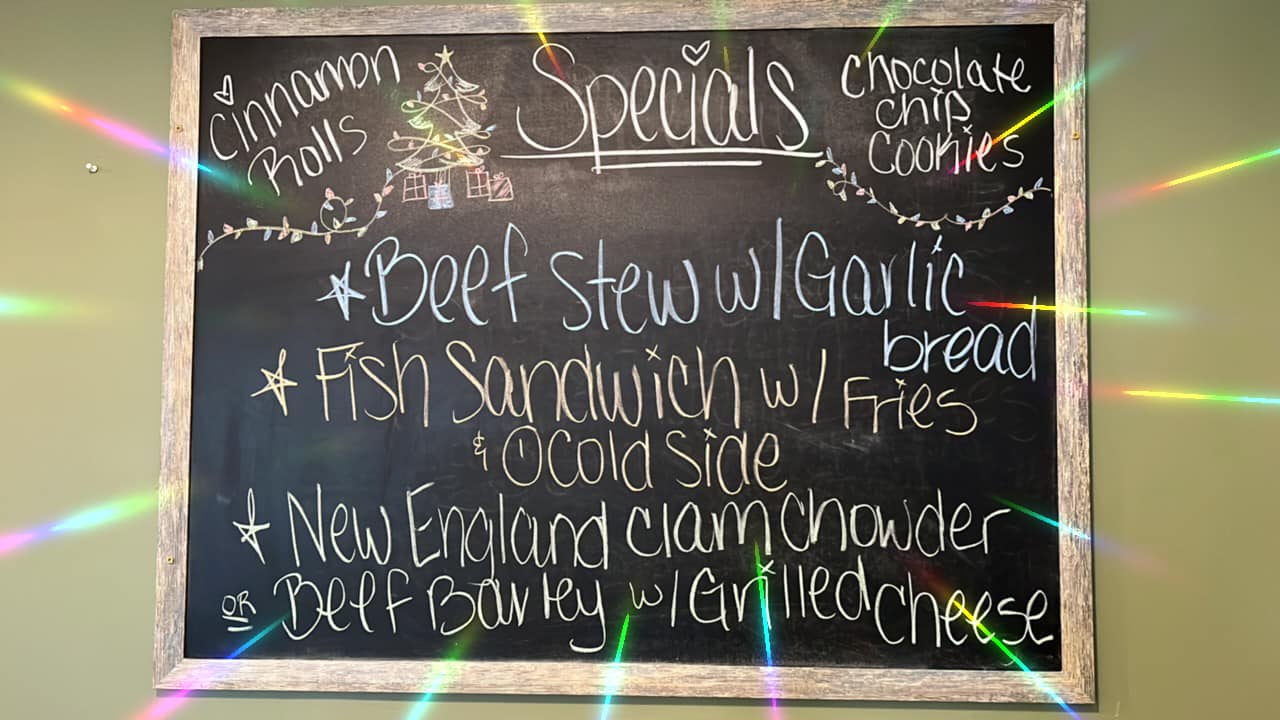 Cinnamon
Rolls
Specials
Chocolate
chip
Cookies
Beef Stew w/Garlic
bread
Fish Sandwich w/ Fries
& 1 Cold Side
New England Clam Chowder
OR Beef Barley w/Grilled Cheese